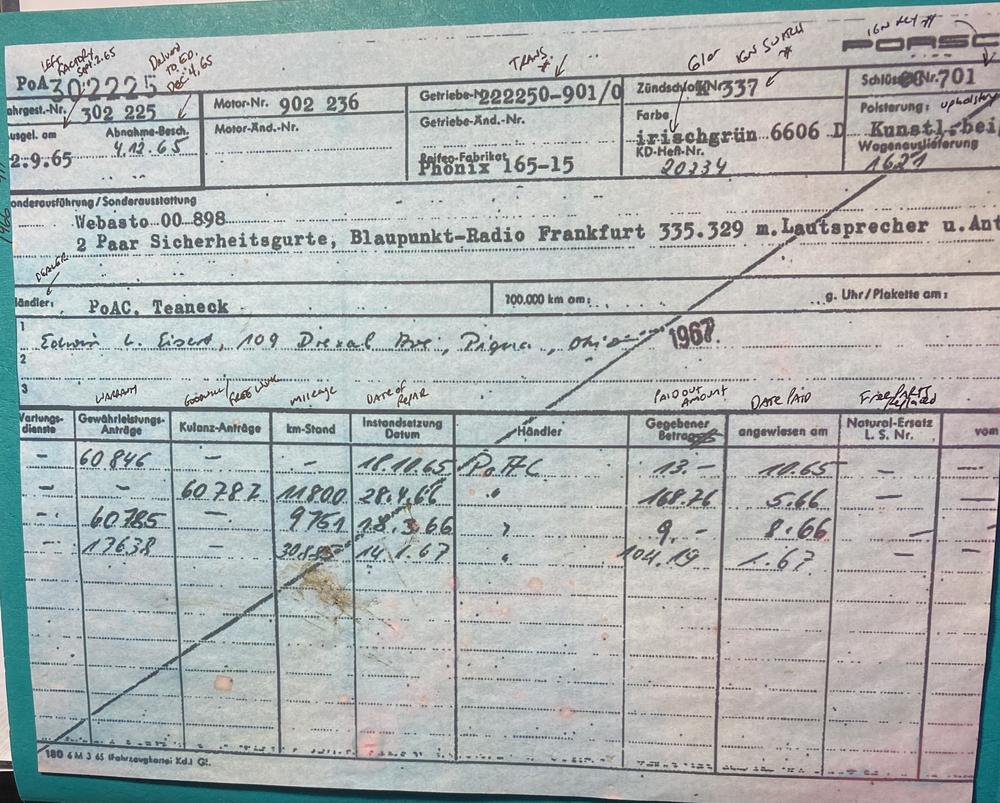 LEFT FACTORY Sept. 2. 65
Delivered TO ED. Dec 4, 65
TRANS #
Color
IGN SWITCH #
IGN KEY #
PORSC
PoA 302225
ahrgest.-Nr. 302 225
Motor-Nr. 902 236
Getriebe-N 222250-901/0
Zündschloß KN 337
Schlüssel-Nr. 701
usgel. am
Abnahme-Besch.
2.9.65
4.12.65
Motor-Änd.-Nr.
Getriebe-Änd.-Nr.
Farbe
irischgrün 6606 D
Polsterung: upholstery
Kunstl.bei
Reifen-Fabrikat
Phönix 165-15
KD-Heft-Nr.
20334
Wagenauslieferung
1621
onderausführung / Sonderausstattung
Webasto 00 898
2 Paar Sicherheitsgurte, Blaupunkt-Radio Frankfurt 335.329 m.Lautsprecher u.Ant
DEALER
ändler: PoAC, Teaneck
100.000 km am:
g. Uhr/Plakette am:
1 Edwin L. Eisert, 109 Drexal Ave, Piqua, Ohio 1967.
2
3
WARRANTY GOODWILL/FREE WORK MILEAGE DATE OF REPAIR PAID OUT AMOUNT DATE PAID Free PARTS Replaced
Wartungs-dienste Gewährleistungs-Anträge Kulanz-Anträge km-Stand Instandsetzung Datum Händler Gegebener Betrag angewiesen am Natural-Ersatz L. S. Nr. vom
– 60846 – – 18.10.65 PoAC 13.– 10.65 – –
– – 60787 11800 28.4.66 " 168.76 5.66 –
– 60785 – 9751 18.3.66 " 9.– 8.66 – –
– 13638 – 14.1.67 " 104.19 1.67 – –
180 6 M 3 65 (Fahrzeugkartei Kd.) G!.